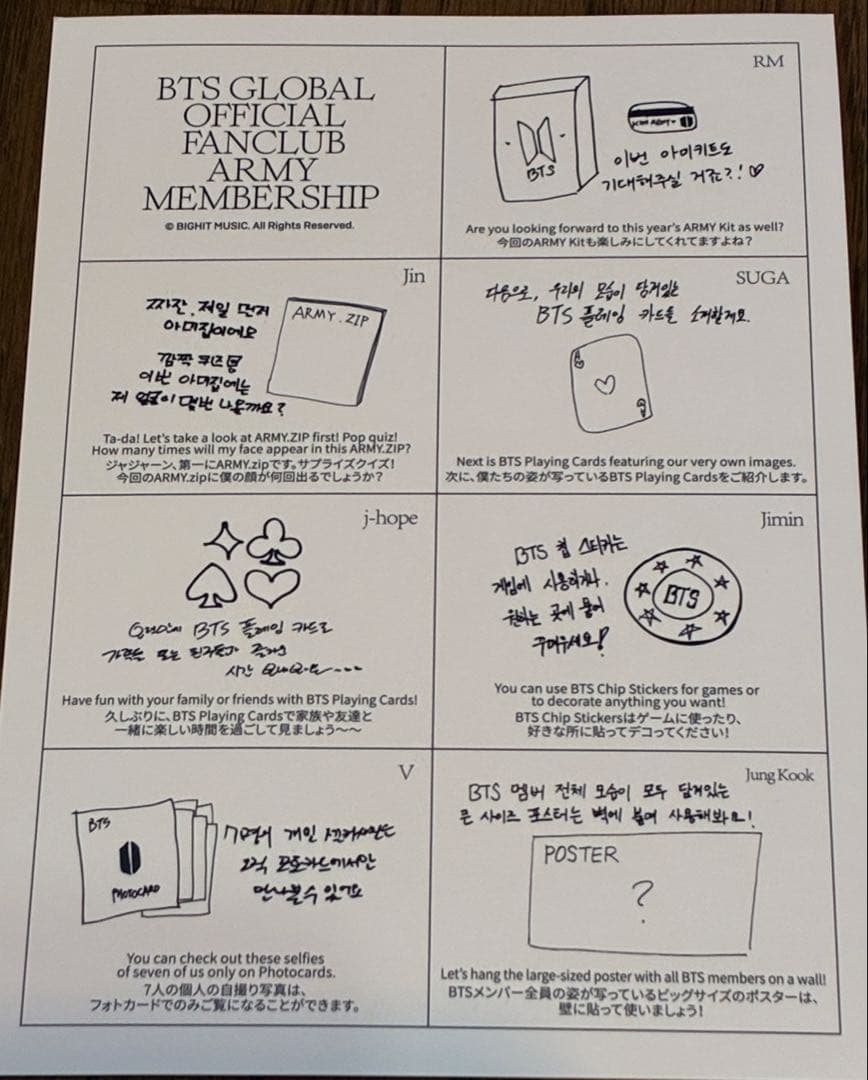 BTS GLOBAL
OFFICIAL
FANCLUB
ARMY
MEMBERSHIP
© BIGHIT MUSIC. All Rights Reserved.
RM
BTS
이번 아미키트도
기대해주실 거죠?!♡
Are you looking forward to this year's ARMY Kit as well?
今回のARMY Kitも楽しみにしてくれてますよね?
Jin
짜잔. 제일 먼저
아미집이에요
ARMY.ZIP
깜짝 퀴즈
이번 아미집에는
저 얼굴이 몇번 나올까요?
Ta-da! Let's take a look at ARMY.ZIP first! Pop quiz!
How many times will my face appear in this ARMY.ZIP?
ジャジャーン、第一にARMY.zipです。サプライズクイズ!
今回のARMY.zipに僕の顔が何回出るでしょうか?
SUGA
다음으로, 우리의 모습이 담겨있는
BTS 플레잉 카드를 소개할게요.
A
Next is BTS Playing Cards featuring our very own images.
次に、僕たちの姿が写っているBTS Playing Cardsをご紹介します。
j-hope
BTS 플레잉 카드로
가족들 또는 친구들과 즐거운
시간
Have fun with your family or friends with BTS Playing Cards!
久しぶりに、BTS Playing Cardsで家族や友達と
一緒に楽しい時間を過ごして見ましょう〜〜
Jimin
BTS 칩 스티커는
게임에 사용하거나,
원하는 곳에 붙여
꾸며주세요!
BTS
You can use BTS Chip Stickers for games or
to decorate anything you want!
BTS Chip Stickersはゲームに使ったり、
好きな所に貼ってデコってください!
V
BTS
PHOTOCARD
7명의 개인 셀카사진은
오직 포토카드에서만
만나볼수 있어요
You can check out these selfies
of seven of us only on Photocards.
7人の個人の自撮り写真は、
フォトカードでのみご覧になることができます。
Jung Kook
BTS 멤버 전체 모습이 모두 담겨있는
큰 사이즈 포스터는 벽에 붙여 사용해봐요!
POSTER
?
Let's hang the large-sized poster with all BTS members on a wall!
BTSメンバー全員の姿が写っているビッグサイズのポスターは、
壁に貼って使いましょう!